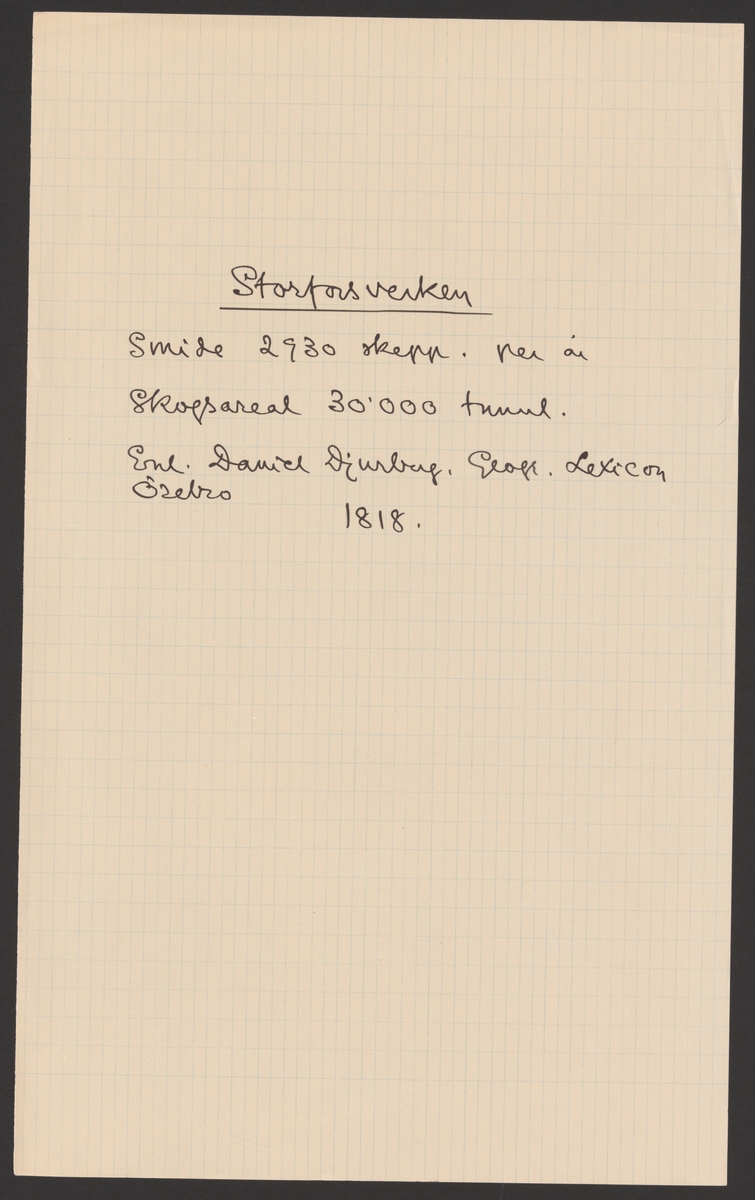 Storforsverken
Smide 2930 skepp. per år
Skogsareal 30'000 tunnl.
Enl. Daniel Djurberg, Geogr. Lexicon
Örebro
1818.